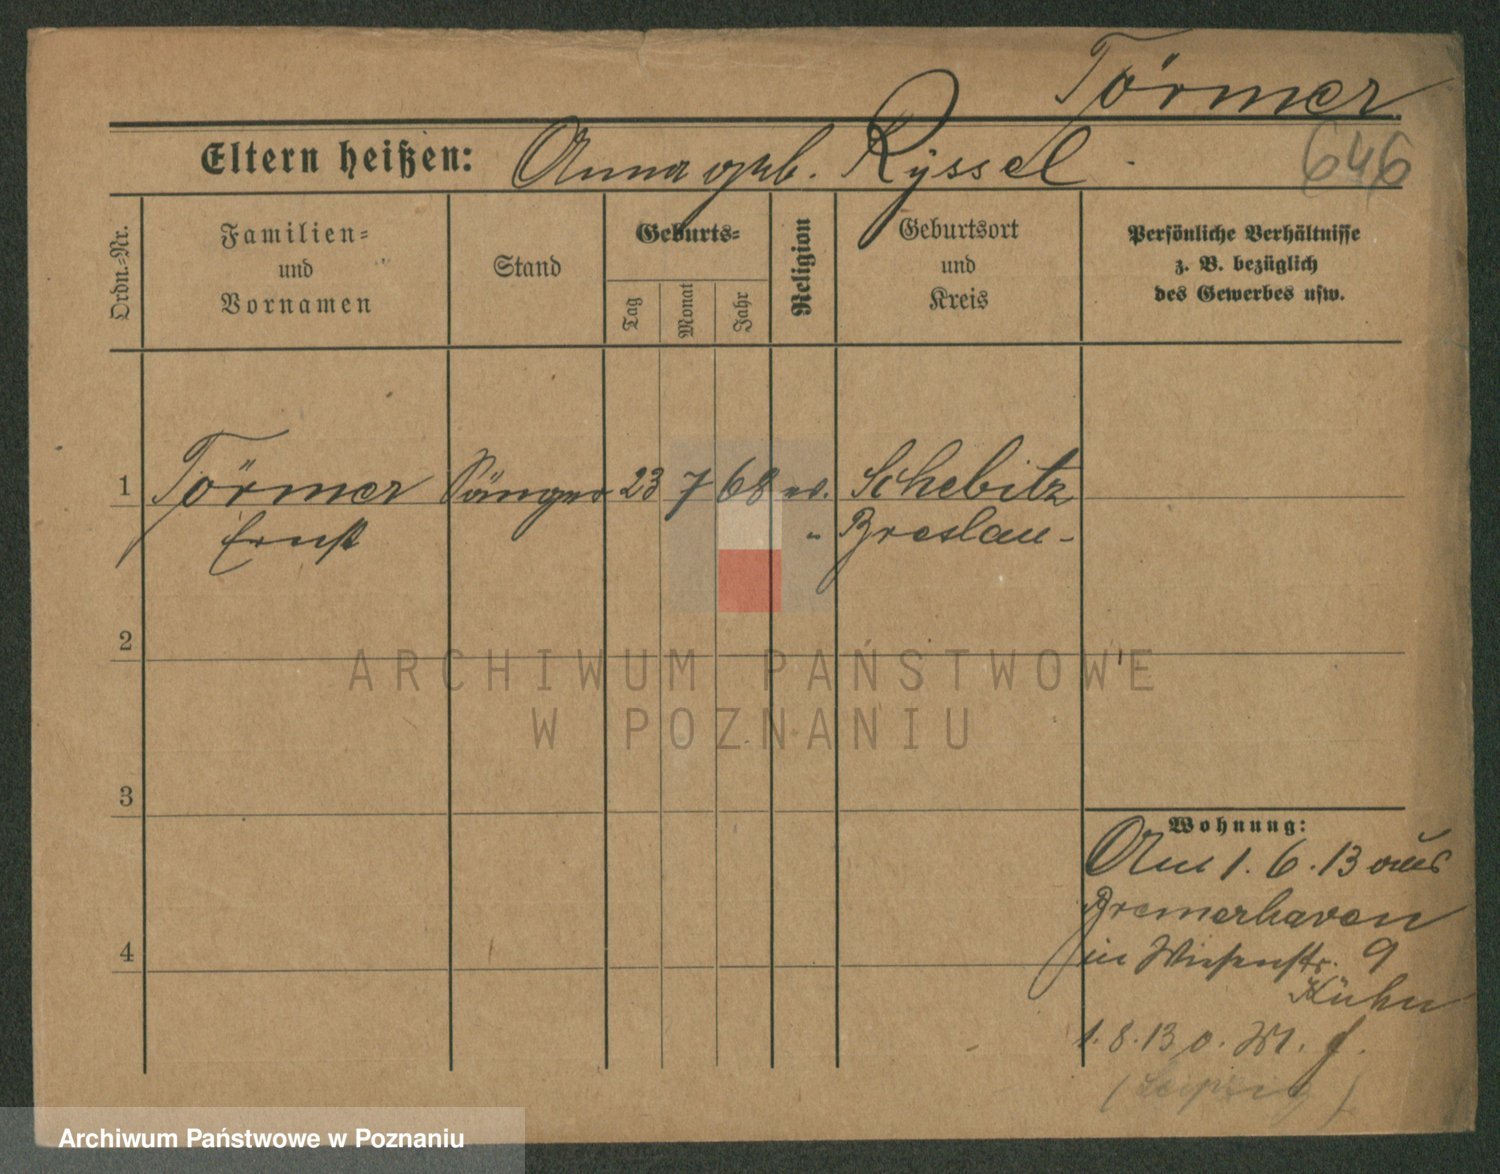 Törmer
646
Eltern heißen: Anna geb. Ryssel
Ordn.-Nr.
Familien-
und
Vornamen
Stand
Geburts-
Tag
Monat
Jahr
Religion
Geburtsort
und
Kreis
Persönliche Verhältnisse
z. B. bezüglich
des Gewerbes usw.
1 Törmer Sänger 23 7 68 ev. Schebitz
Ernst " Breslau -
2
ARCHIWUM PAŃSTWOWE
W POZNANIU
3
Wohnung:
Am 1.6.13 aus
Bremerhaven
4
in Wiesenstr. 9
Kühn
1.8.13 o. M. f.
(Leipzig)
Archiwum Państwowe w Poznaniu